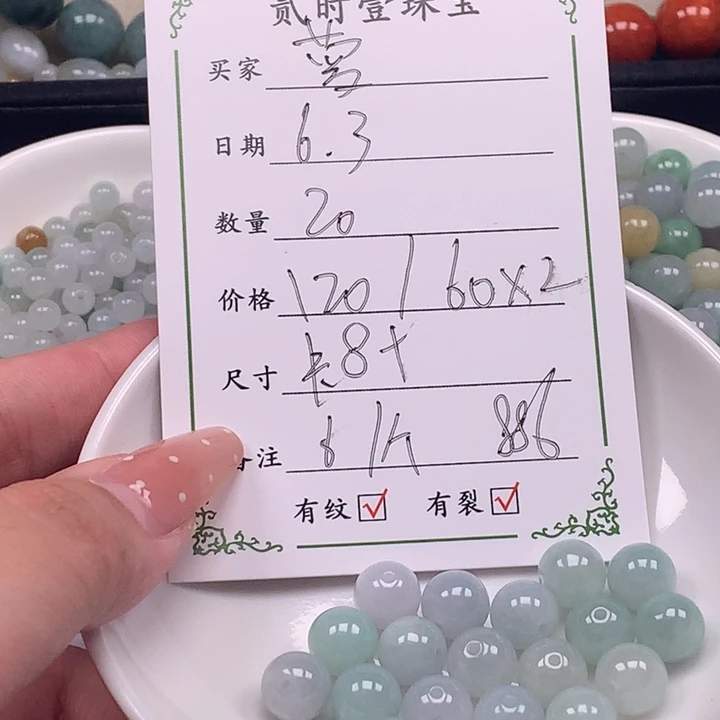 贰时壹珠宝
买家
日期 6.3
数量 20
价格 120 / 60x2
尺寸 卡8+
备注 6/个 886
有纹☑ 有裂☑